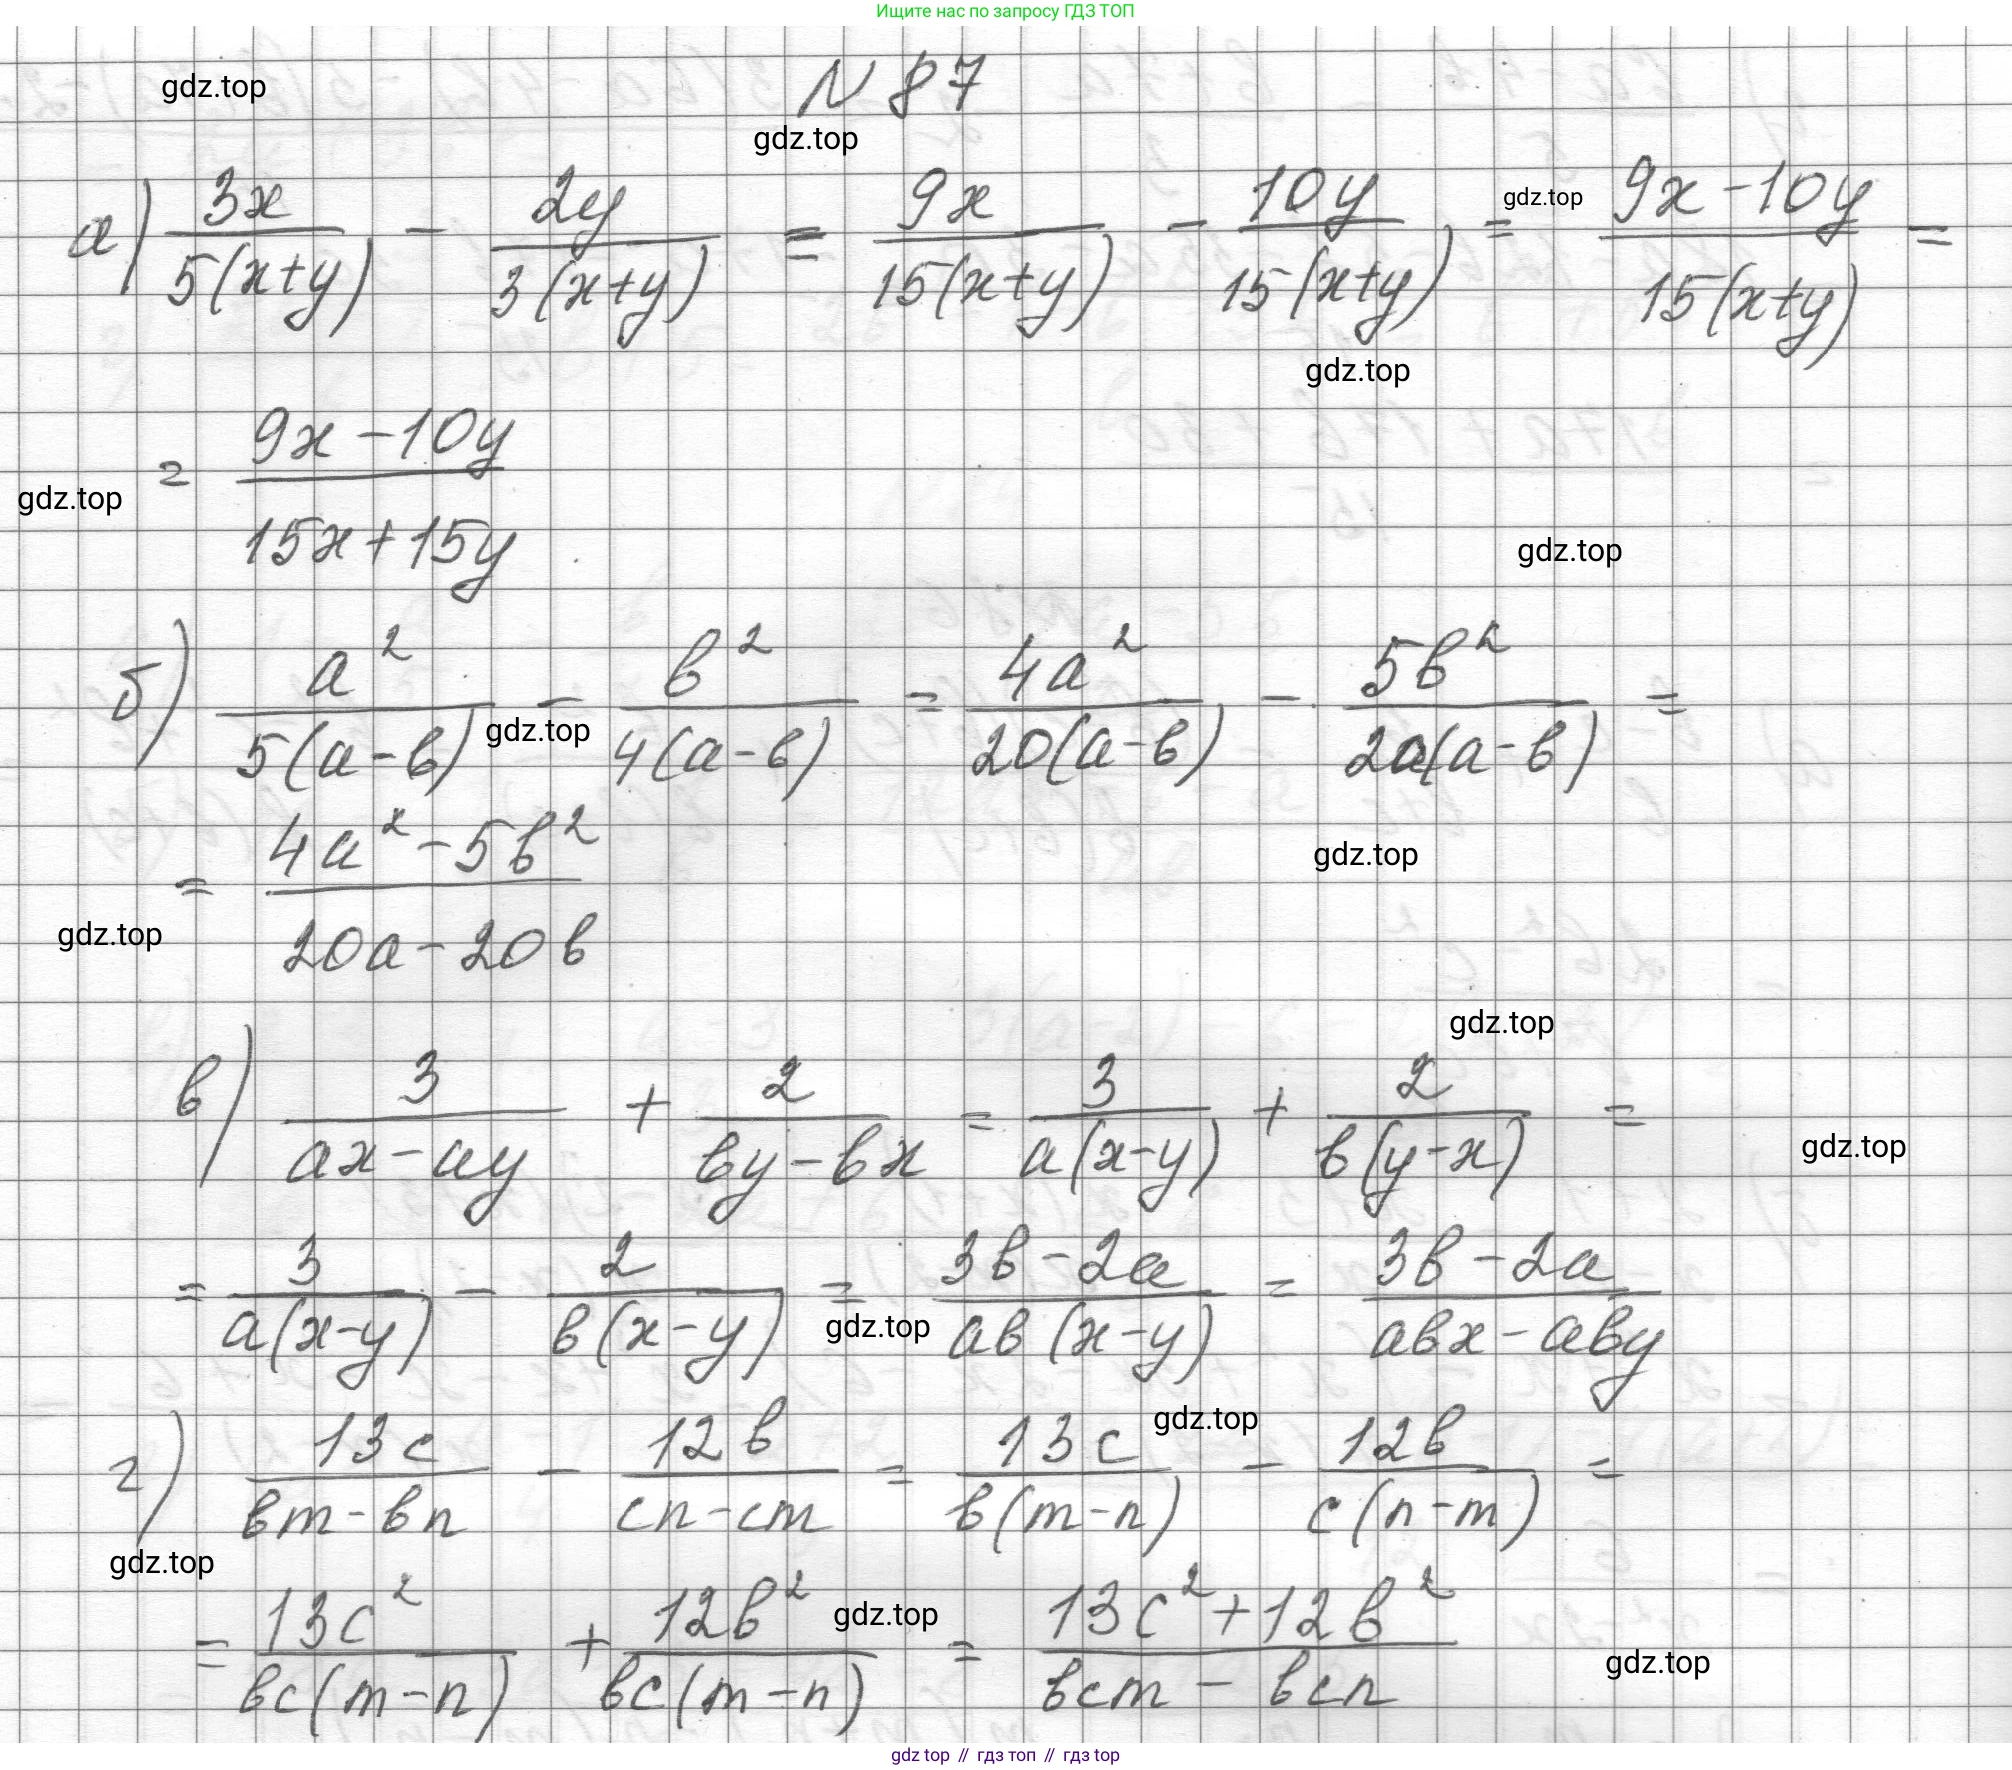 Ищите нас по запросу ГДЗ ТОП
gdz.top
N 87
gdz.top
а) 3x/(5(x+y)) - 2y/(3(x+y)) = 9x/(15(x+y)) - 10y/(15(x+y)) = (9x-10y)/(15(x+y)) =
gdz.top
gdz.top
= (9x-10y)/(15x+15y)
gdz.top
gdz.top
б) a²/(5(a-b)) - b²/(4(a-b)) = 4a²/(20(a-b)) - 5b²/(20(a-b)) =
gdz.top
gdz.top
= (4a²-5b²)/(20a-20b)
gdz.top
gdz.top
в) 3/(ax-ay) + 2/(by-bx) = 3/(a(x-y)) + 2/(b(y-x)) =
gdz.top
= 3/(a(x-y)) - 2/(b(x-y)) = (3b-2a)/(ab(x-y)) = (3b-2a)/(abx-aby)
gdz.top
gdz.top
г) 13c/(bm-bn) - 12b/(cn-cm) = 13c/(b(m-n)) - 12b/(c(n-m)) =
gdz.top
= 13c²/(bc(m-n)) + 12b²/(bc(m-n)) = (13c²+12b²)/(bcm-bcn)
gdz.top
gdz.top
gdz top // гдз топ // гдз top